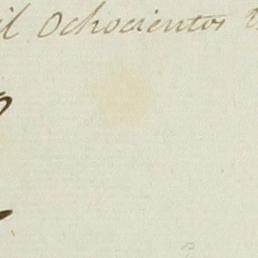 il Ochocientos